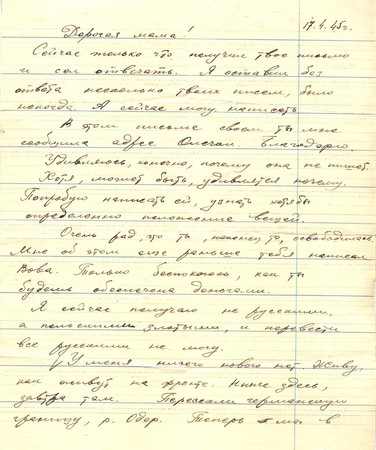 17.4.45г.
Дорогая мама!
Сейчас только что получил твое письмо
и сел отвечать. Я оставил без
ответа несколько твоих писем, было
некогда. А сейчас могу написать
В этом письме своем ты мне
сообщила адрес Благодарю.
Удивляюсь, конечно, почему она не пишет.
Хотя, может быть, удивляется почему.
Попробую написать ей, узнать хотя бы
определенно положение вещей.
Очень рад, что ты, наконец то, освободилась.
Мне об этом еще раньше тебя написал
Вова. Только беспокоюсь, как ты
будешь обеспечена деньгами.
Я сейчас получаю не русскими,
а польскими злотыми, и перевести
все русскими не могу.
У меня ничего нового нет. Живу,
как живут на фронте. Нынче здесь,
завтра там. Пересекли германскую
границу, р. Одер. Теперь мы в